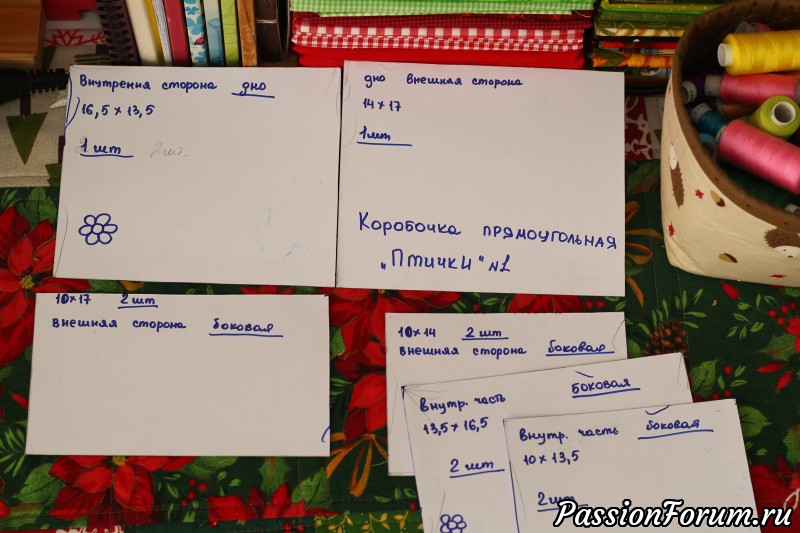 Внутрення сторона дно
16,5 х 13,5
1 шт 2 шт.
дно внешная сторона
14 х 17
1 шт
Коробочка прямоугольная
„Птички" №1
10х17 2 шт
внешняя сторона боковая
10х14 2 шт
внешняя сторона боковая
Внутр. часть боковая
13,5 х 16,5
2 шт
Внутр. часть боковая
10 х 13,5
2 шт
PassionForum.ru